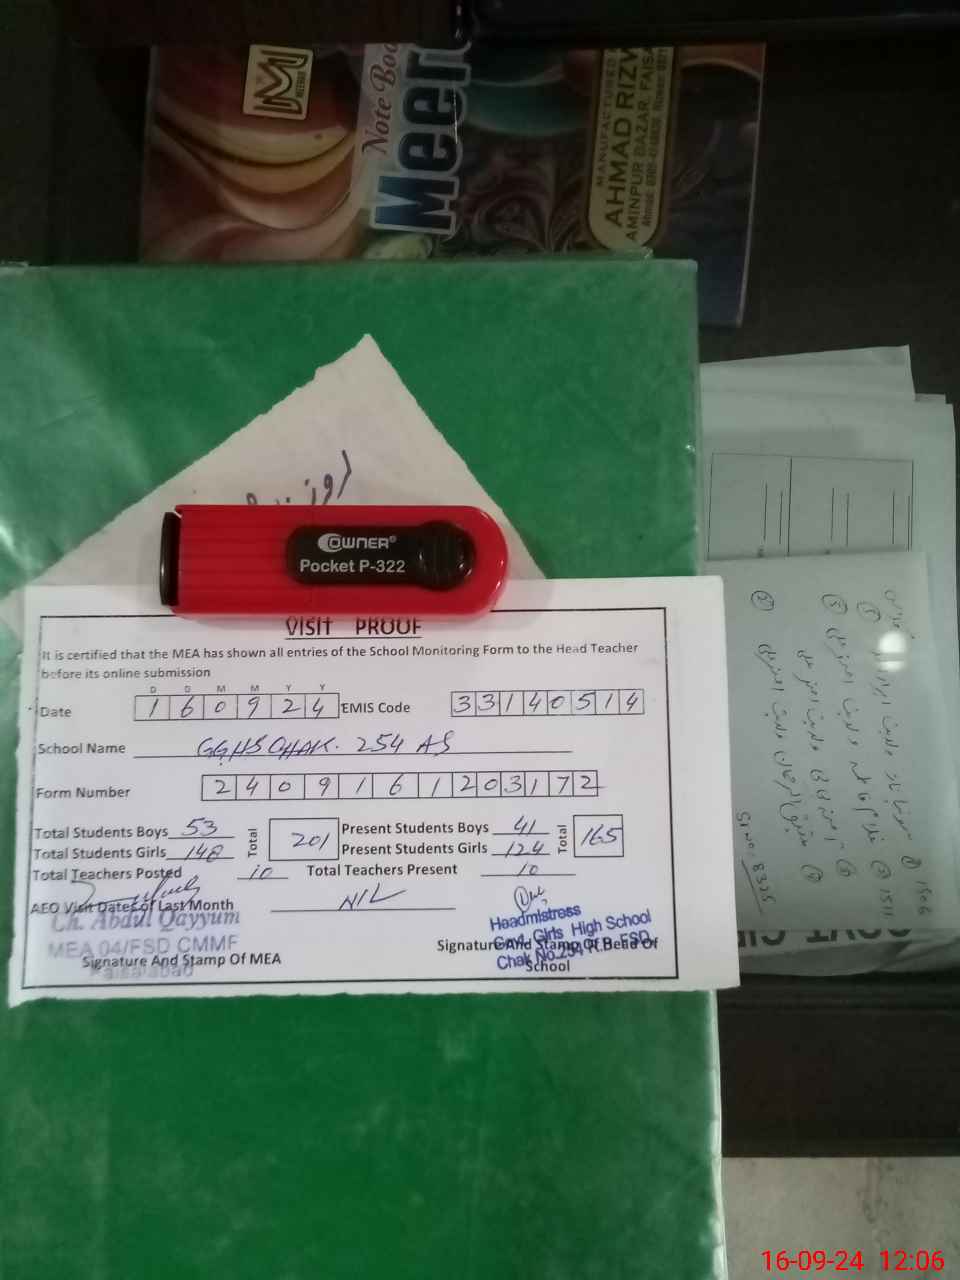 MEERAB
Note Boo
Meer
MANUFACTURED
AHMAD RIZW
AMINPUR BAZAR, FAISA
OWNER®
Pocket P-322
VISIT PROOF
It is certified that the MEA has shown all entries of the School Monitoring Form to the Head Teacher
before its online submission
D D M M Y Y
Date 1 6 0 9 2 4 EMIS Code 3 3 1 4 0 5 1 4
School Name GGHS CHAK. 254 AS
Form Number 2 4 0 9 1 6 1 2 0 3 1 7 2
Total Students Boys 53 Total 201 Present Students Boys 41 Total 165
Total Students Girls 148 Present Students Girls 124
Total Teachers Posted 10 Total Teachers Present 10
AEO Visit Dates of Last Month NIL
Ch. Abdul Qayyum
MEA 04/FSD CMMF
Faisalabad
Signature And Stamp Of MEA
Headmistress
Govt. Girls High School
Chak No. 254 R.B. FSD
Signature And Stamp Of Head Of
School
1506
1511
Sr no. 8325
16-09-24 12:06